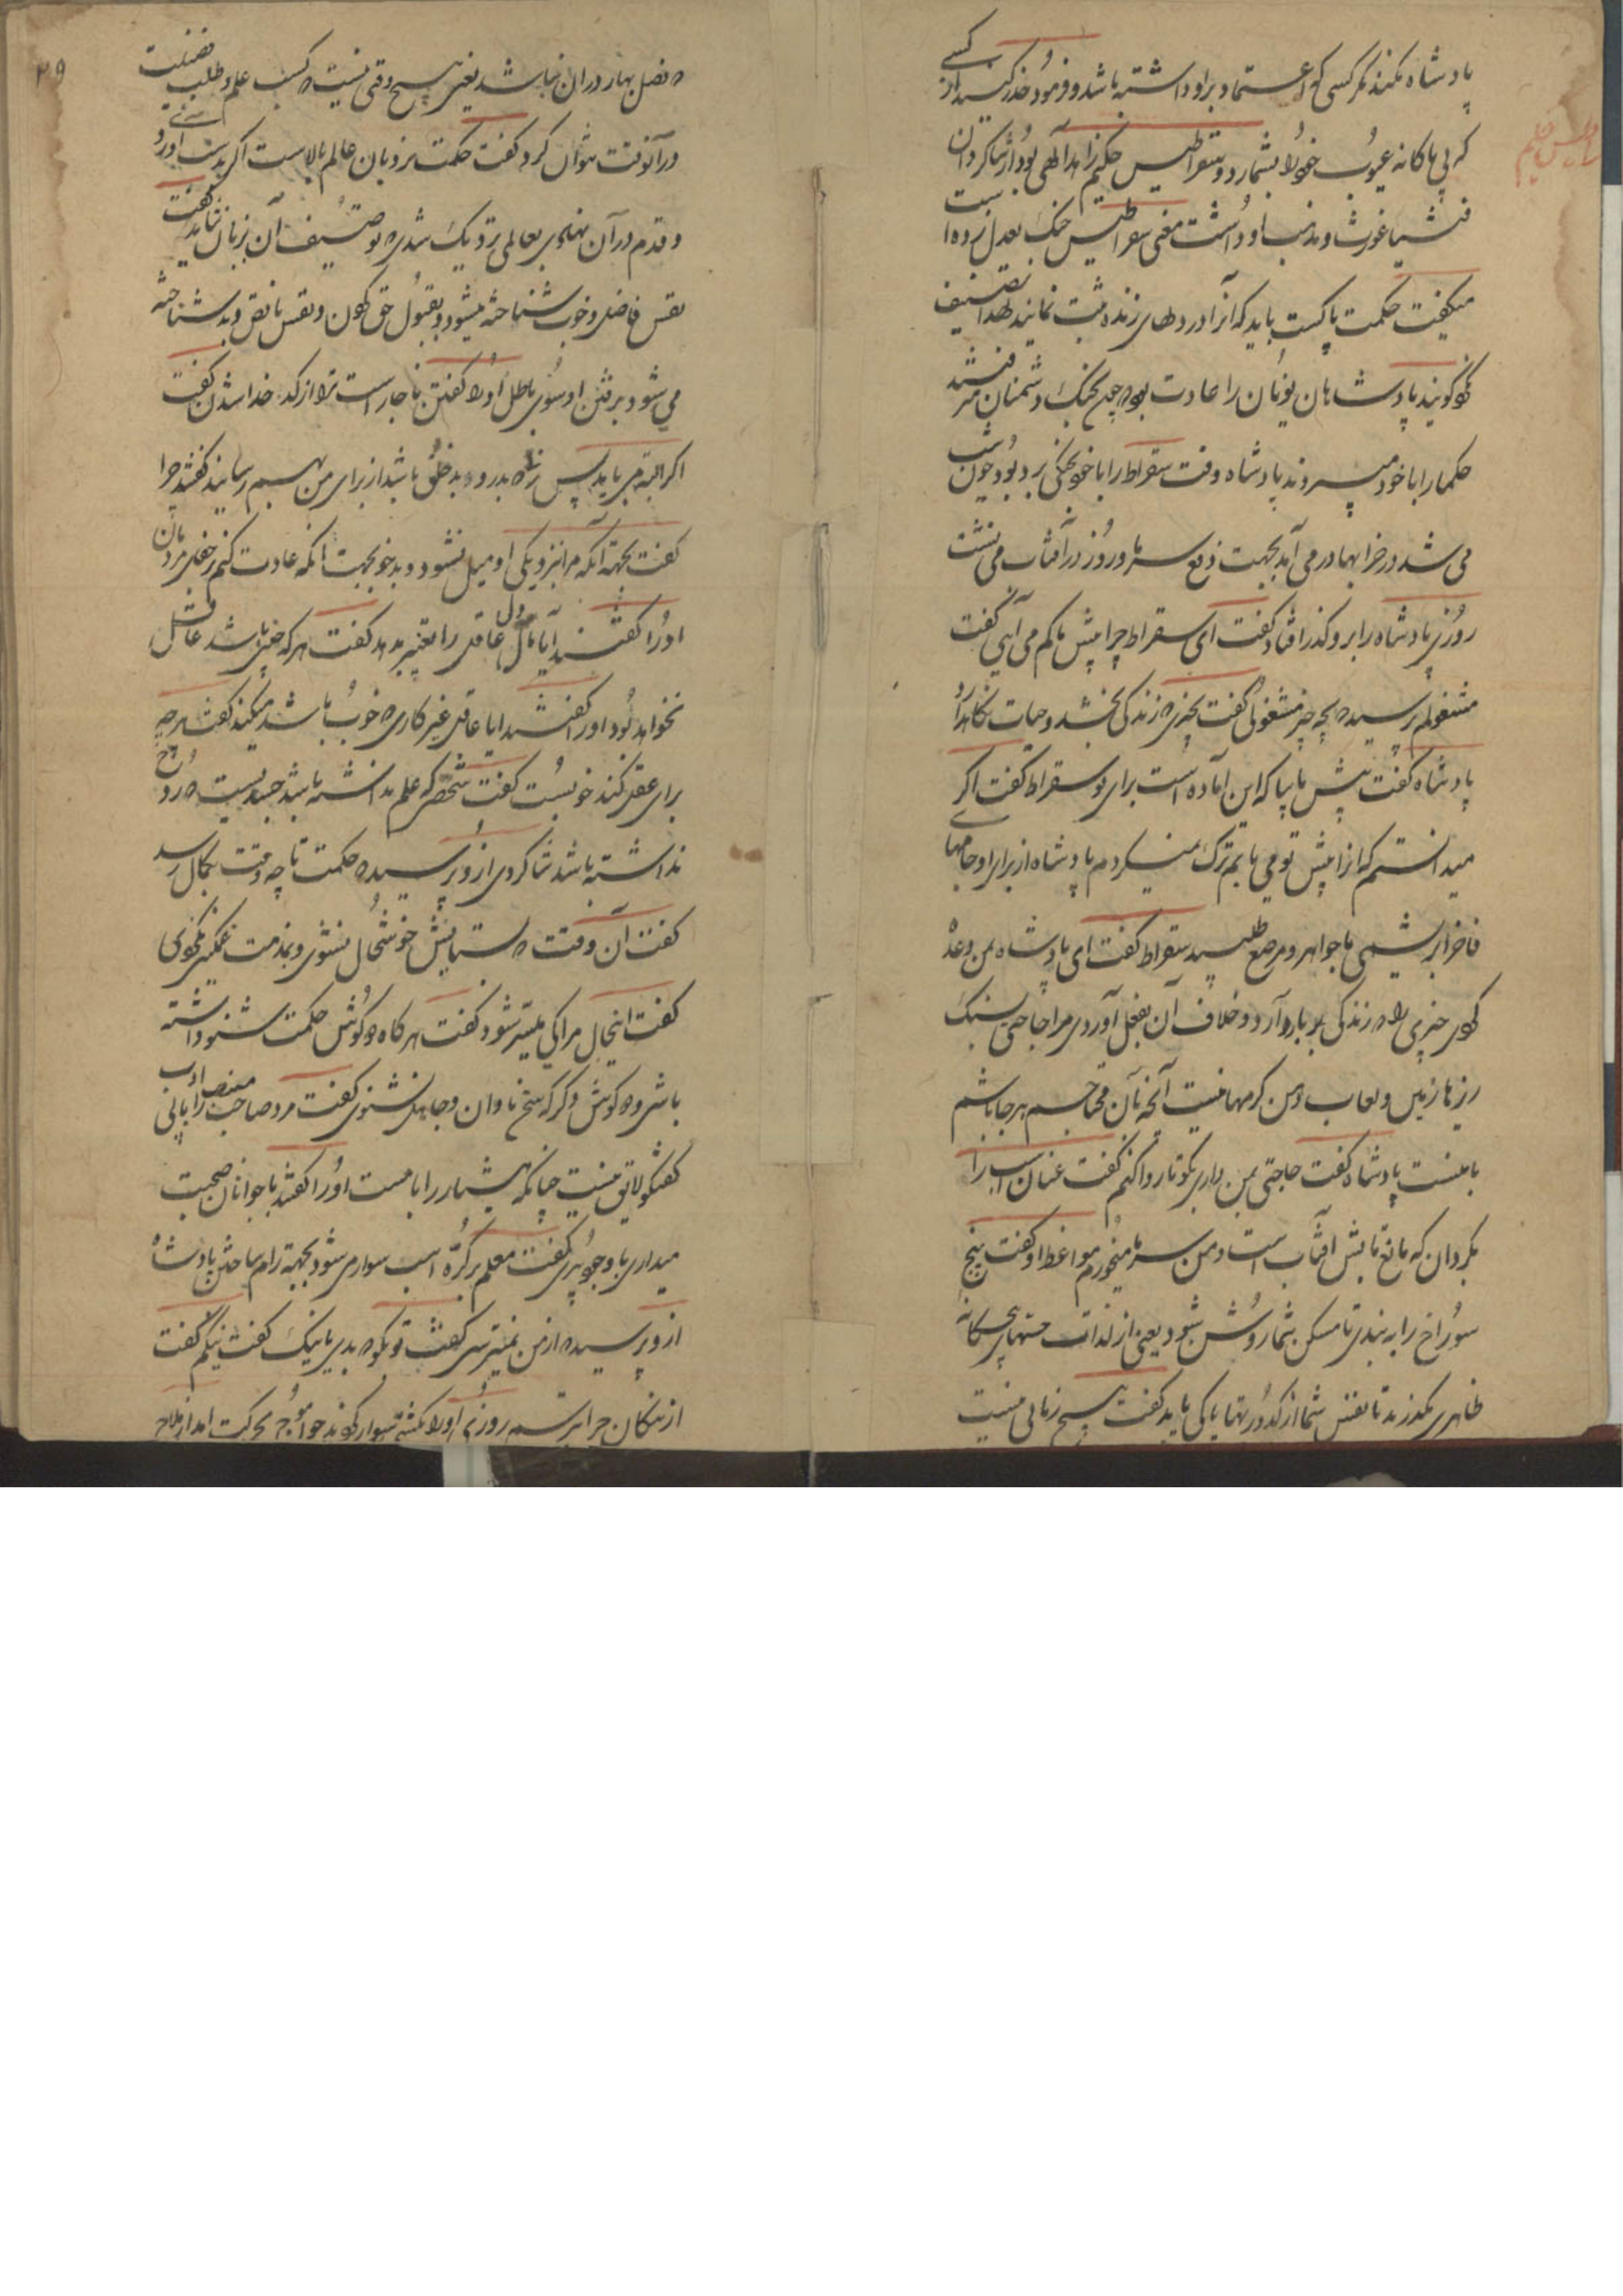 پادشاه نکند مگر کسی که اعتماد بر او داشته باشد و فرمود حذر کنید از کسی
که بی باکانه عیوب خود را بشمارد و سقراطیس حکیم زاهد الهی بود از شاکردان
فیشاغورث و مذهب او داشت معنی سقراطیس چنگ بعدل زده است
میکفت حکمت پاکست باید که آنرا در دلهای زنده ثبت نمایند لهذا تصنیف
کویند پادشاهان یونان را عادت بود چون بجنک دشمنان میرفتند
حکما را با خود میبردند پادشاه وقت سقراط را با خود بجنکی برده بود چون شب
می شد در خرابها در می آمد بجهت دفع سرما و روز در آفتاب می نشست
روزی پادشاه را بر او کذر افتاد کفت ای سقراط چرا پیش ما کم می آیی کفت
مشغولم پرسید بچه چیز مشغولی کفت بچیزی که زندکی بخشد و حیات نکاهدارد
پادشاه کفت پیش ما بیا که این آماده است برای تو سقراط کفت اکر
میدانستم که آنرا پیش تو می یابم ترک نمیکردم پادشاه از برای او جامهای
فاخر ابریشمی با جواهر و مرصع طلبید سقراط کفت ای پادشاه بمن وعده
کردی چیزی را که زندکی بر پا دارد و خلاف آن بفعل آوردی مرا حاجتی بسنک
ریزهای زمین و لعاب دهن کرمها نیست آنچه بآن محتاجم هر جا باشم
با منست پادشاه کفت حاجتی بمن داری بکو تا روا کنم کفت عنان اسب را
بکردان که مانع تابش آفتاب است و من سرما میخورم مواعظ او کفت پنج
سوراخ را به بندی تا مسکن شما روشن شود یعنی از لذات حسهای پنجکانه
ظاهری بکذرید تا نفس شما از کدورتها پاکی یابد کفت هیچ زمانی نیست
۲۹
که فصل بهار در آن نباشد یعنی هیچ وقتی نیست که کسب علم و طلب فضیلت
در آنوقت نتوان کرد کفت حکمت نردبان عالم بالاست اکر بدست آوردی
و قدم در آن نهادی بعالمی نزدیک شدی که توصیف آن بزبان نشاید کفت
نفس فاضل و خوب شناخته میشود بقبول حق کردن و نفس ناقص و بد شناخته
می شود برفتن او سوی باطل او را کفتند ناچار است ترا از کدخدا شدن کفت
اکر البته می باید پس زنی بدرو و بدخلق باشد از برای من بهم رسانید کفتند چرا
کفت بجهة آنکه مرا بنزدیکی او میل نشود و بدخو بجهت آنکه عادت کنم بر جفای مردمان
او را کفتند آیا مال دل عاقل را تغییر میدهد کفت هر که چنین باشد عاقل
نخواهد بود او را کفتند آیا عاقل غیر کاری که خوب باشد میکند کفت هر چه
برای عقل کند خوبست کفت شخصی که علم نداشته باشد جسدیست که روح
نداشته باشد شاکردی از او پرسید که حکمت تا چه وقت بکمال رسد
کفت آن وقت که بستایش خوشحال نشوی و بمذمت غمکین نکردی
کفت اینحال مرا کی میسر شود کفت هر کاه کوش حکمت شنو داشته
باشی و کوش دیکر که سخن نادان و جاهل نشنوی کفت مرد صاحب ادب را با بی
کفتکو لایق نیست چنانکه هشیار را با مست او را کفتند با جوانان صحبت
میداری با وجود پیری کفت معلم بر کرّه اسب سوار می شود بجهة رام ساختن پادشاه
از او پرسید که از من نمیترسی کفت تو بکو که بدی یا نیک کفت نیکم کفت
از نیکان چرا بترسم روزی او را بکشتی سوار کردند چون موج بحرکت آمد از ملاح